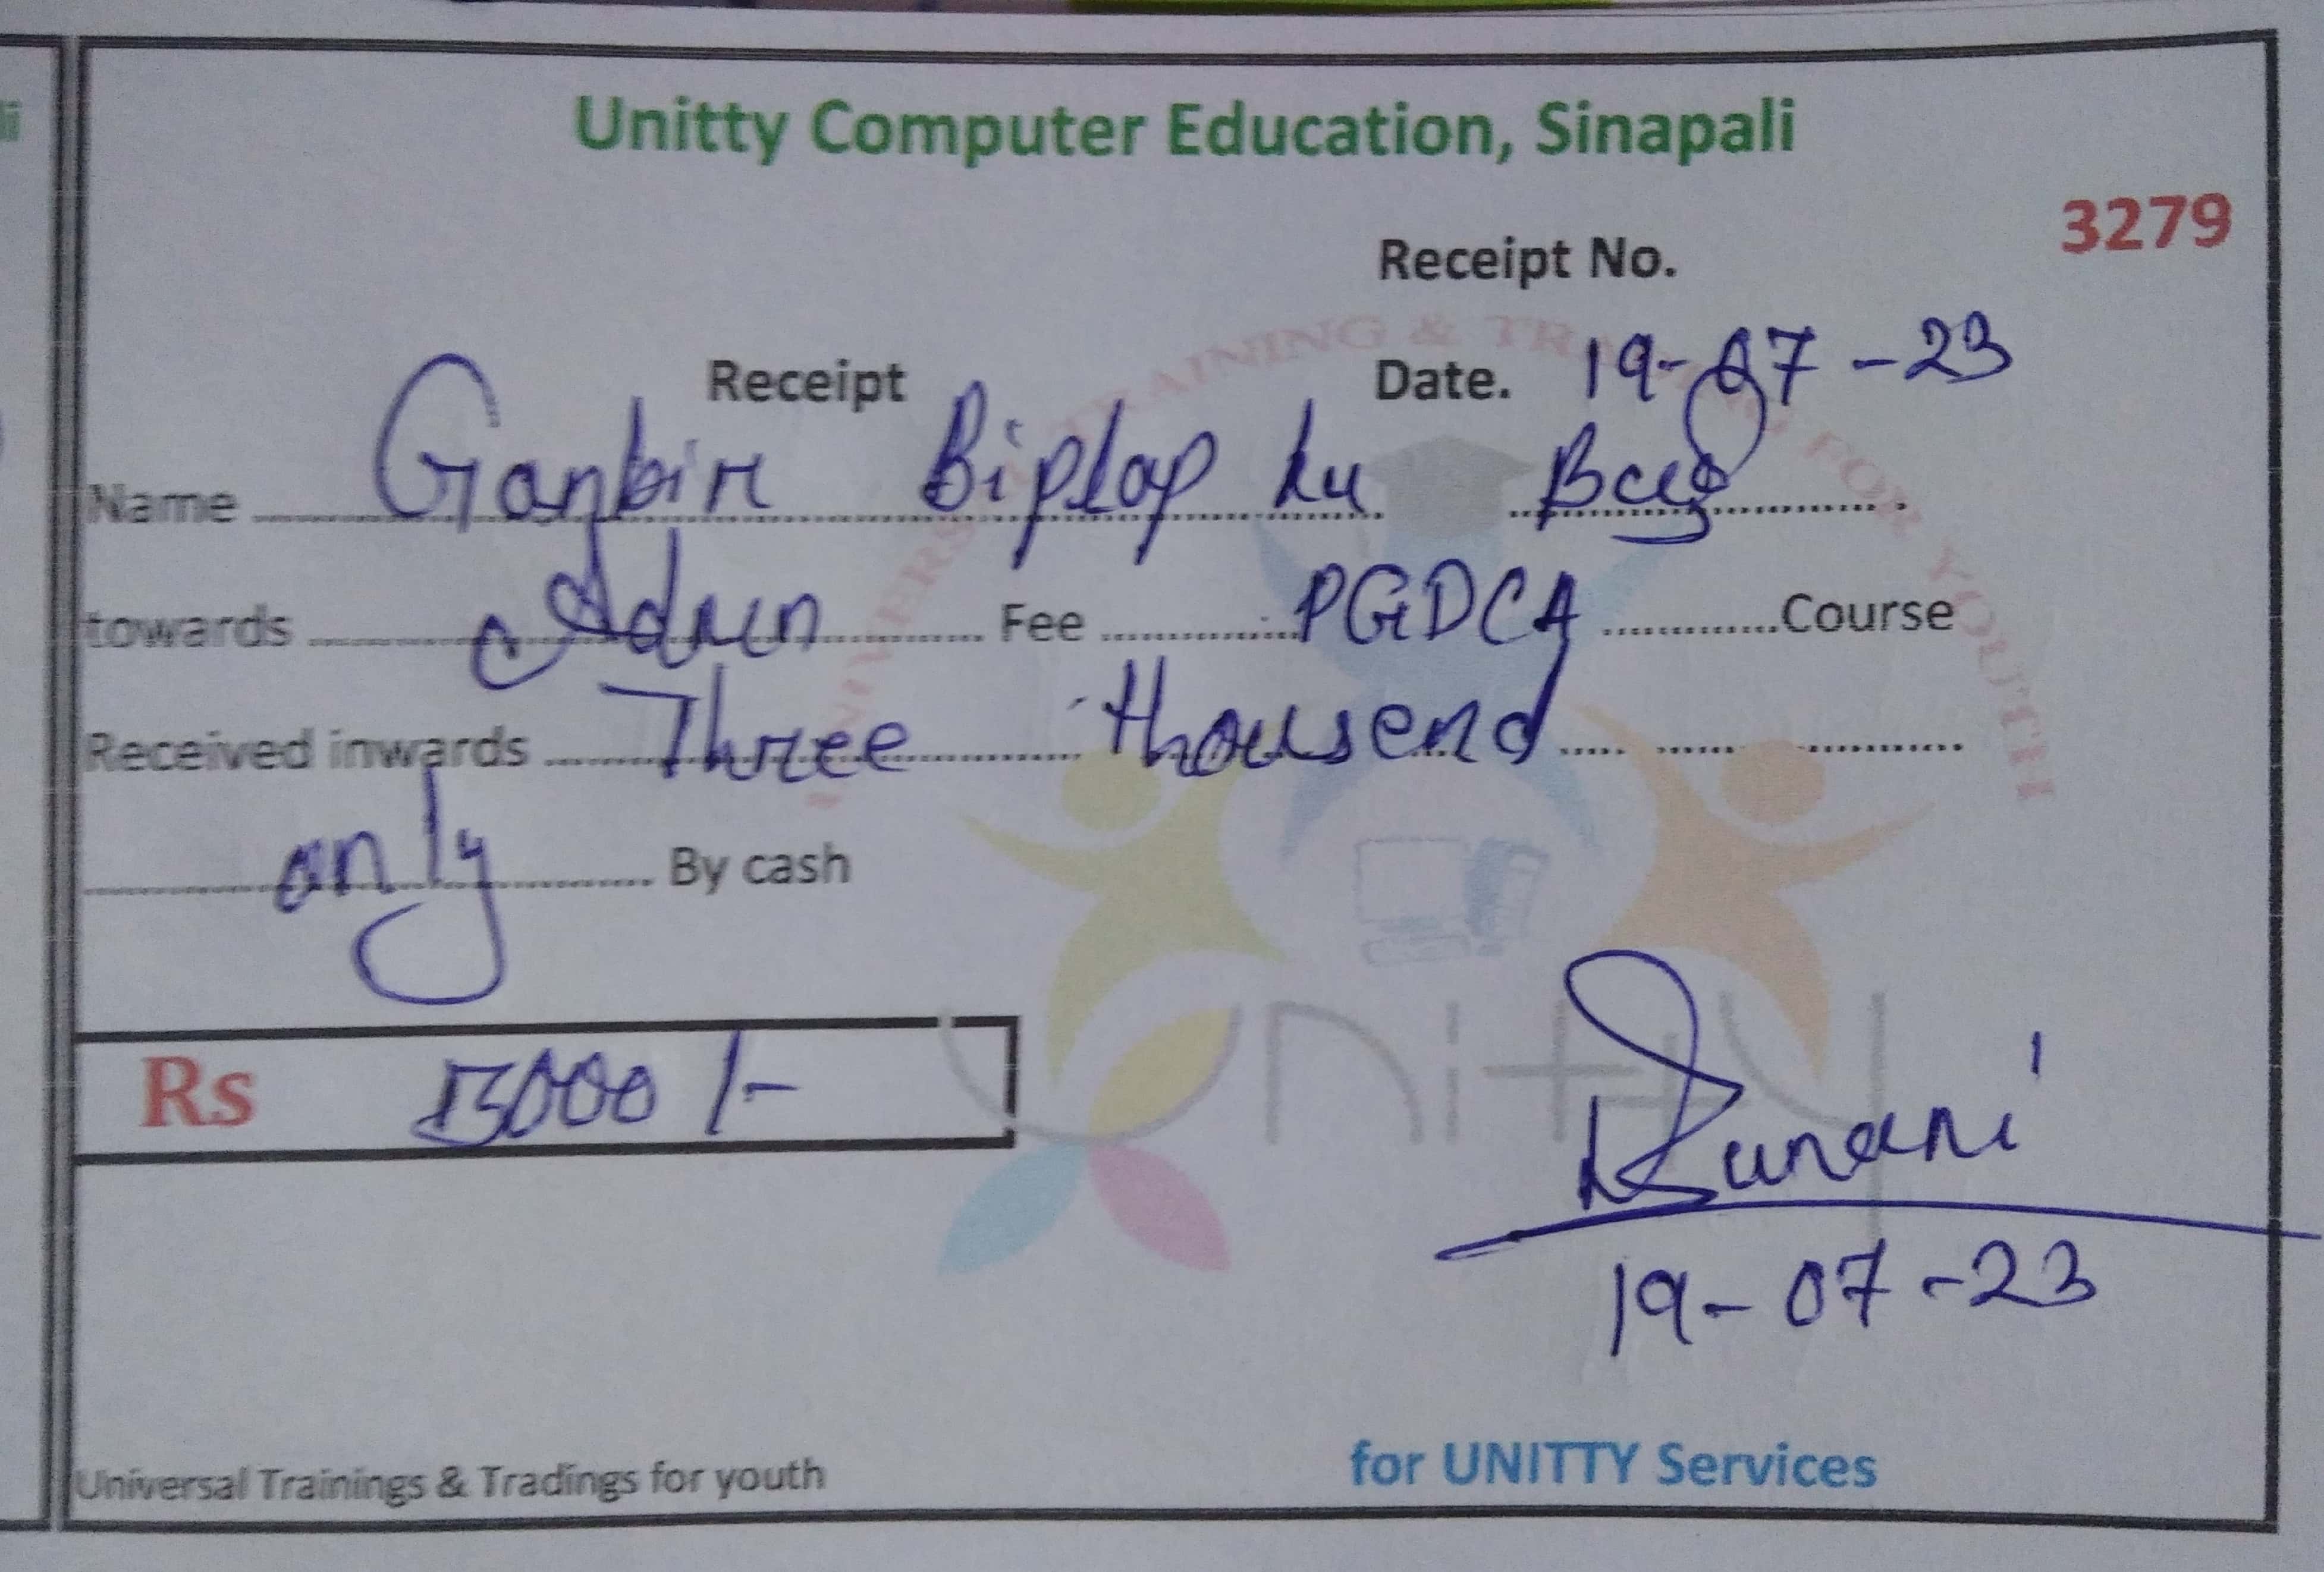 li
Unitty Computer Education, Sinapali
3279
Receipt No.
Receipt Date. 19-07-23
Name Ganbir Biplap ku
towards Admn Fee PGDCA Course
Received inwards Three thousend
only By cash
Rs 3000 /-
UNIVERSAL TRAINING & TRADING FOR YOUTH
Unitty
Sunani
19-07-23
Universal Trainings & Tradings for youth
for UNITTY Services